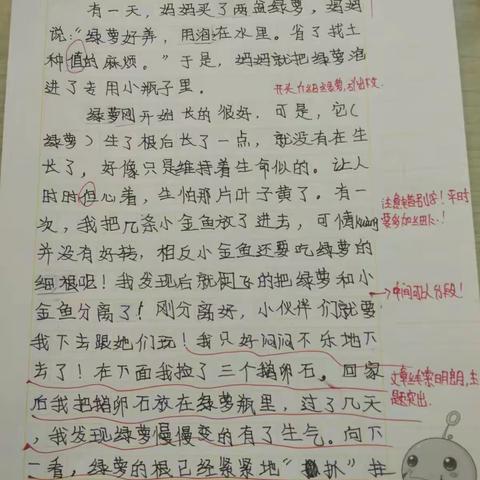 有一天，妈妈买了两盆绿萝，妈妈
说："绿萝好养，用泡在水里。省了找土
种值的麻烦。"于是，妈妈就把绿萝泡
进了专用小瓶子里。
开头介绍这绿萝，引出下文
绿萝刚开始长的很好，可是，它（
绿萝）生了根后长了一点，就没有在生
长了，好像只是维持着生命似的。让人
时时但心着，生怕那片叶子黄了。有一
注意错别字！平时
次，我把几条小金鱼放了进去，可情kuàng
要多加细心！
并没有好转，相反小金鱼还要吃绿萝的
细根呢！我发现后就圆飞的把绿萝和小
中间可以分段！
金鱼分离了！刚分离好，小伙伴们就要
我下去跟她们玩！我只好闷闷不乐地下
去了！在下面我捡了三个鹅卵石。回家
文章线索明朗，主
题突出。
后我把鹅卵石放在绿萝瓶里，过了几天
，我发现绿萝慢慢变的有了生气。向下
一看，绿萝的根已经紧紧地"扒"在